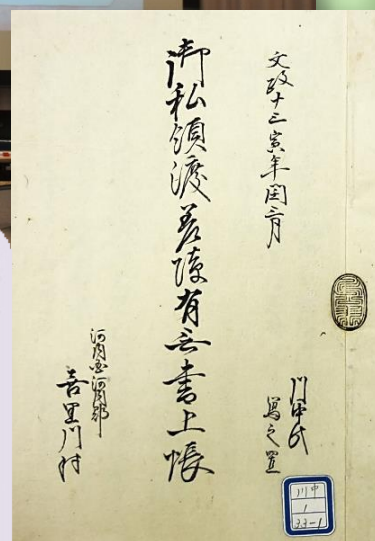 文政十三寅年閏三月
川中氏
写之置
御私領渡差障有無書上帳
河内国河内郡
喜里川村
川中
1
33-1